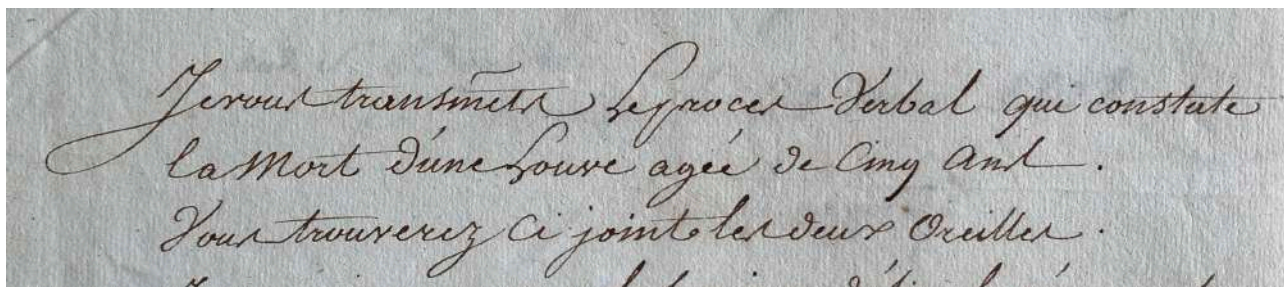 Je vous transmets Le procès Verbal qui constate
la Mort d'une Louve agée de Cinq Ans.
Vous trouverez Ci joint les deux Oreilles.